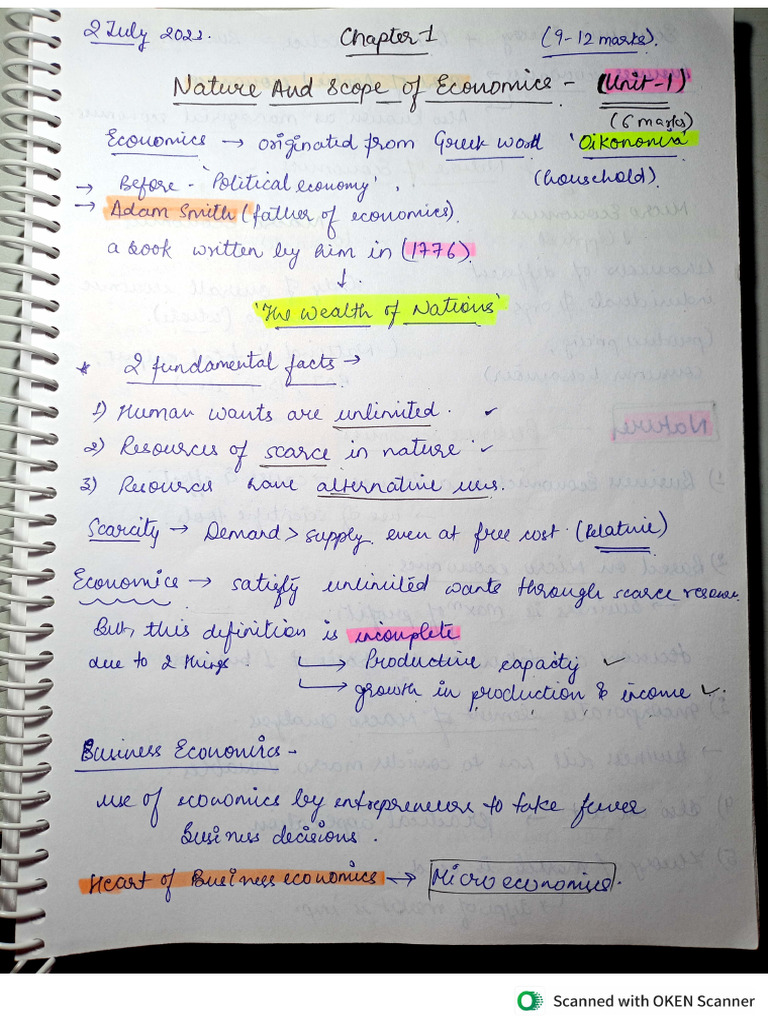 2 July 2022. Chapter-1 (9-12 marks).
Nature And Scope of Economics - (Unit-1)
(6 marks)
Economics → originated from Greek word 'Oikonomia'
(household).
→ Before - 'Political economy'.
→ Adam Smith (father of economics).
a book written by him in (1776).
↓
'The Wealth of Nations'
* 2 fundamental facts →
1) Human wants are unlimited. ✓
2) Resources of scarce in nature ✓
3) Resources have alternative uses.
Scarcity → Demand > supply even at free cost (Relative)
Economics → satisfy unlimited wants through scarce
But, this definition is incomplete
due to 2 things → Productive capacity ✓
→ growth in production & income ✓
Business Economics -
use of economics by entrepreneurs to take
Business decisions.
Heart of Business economics ↔ Micro economics.
Scanned with OKEN Scanner